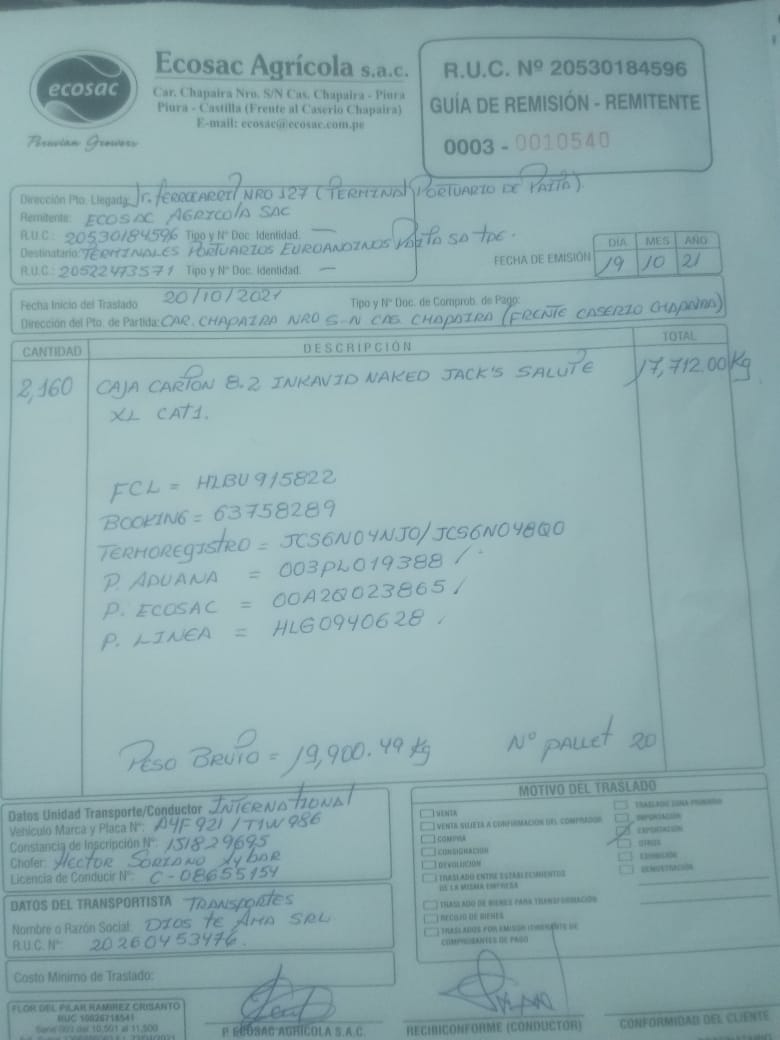 ecosac
Peruvian Growers
Ecosac Agrícola s.a.c.
Car. Chapaira Nro. S/N Cas. Chapaira - Piura
Piura - Castilla (Frente al Caserio Chapaira)
E-mail: ecosac@ecosac.com.pe
R.U.C. Nº 20530184596
GUÍA DE REMISIÓN - REMITENTE
0003 - 0010540
Dirección Pto. Llegada: Jr. FERROCARRIL NRO 127 (TERMINAL PORTUARIO DE PAITA).
Remitente: ECOSAC AGRICOLA SAC
R.U.C.: 20530184596 Tipo y Nº Doc. Identidad. —
Destinatario: TERMINALES PORTUARIOS EUROANDINOS PAITA SA
R.U.C.: 20522473571 Tipo y Nº Doc. Identidad. —
FECHA DE EMISIÓN
DÍA MES AÑO
19 10 21
Fecha Inicio del Traslado 20/10/2021 Tipo y Nº Doc. de Comprob. de Pago:
Dirección del Pto. de Partida: CAR. CHAPAIRA NRO S-N CAS. CHAPAIRA (FRENTE CASERIO CHAPAIRA)
CANTIDAD DESCRIPCIÓN TOTAL
2,160 CAJA CARTON 8.2 INKAVID NAKED JACK'S SALUTE 17,712.00 Kg
XL CAT1.
FCL = HLBU 915822
BOOKING = 63758289
TERMOREGISTRO = JCS6N04NJ0/JCS6N048Q0
P. ADUANA = 003PL019388
P. ECOSAC = 00A2Q023865
P. LINEA = HLG0940628
PESO BRUTO = 19,900.49 Kg Nº PALLET 20
Datos Unidad Transporte/Conductor INTERNATIONAL
Vehículo Marca y Placa Nº: A4F921 / T1W986
Constancia de Inscripción Nº: 151829695
Chofer: HECTOR SORIANO
Licencia de Conducir Nº: C-08655154
DATOS DEL TRANSPORTISTA TRANSPORTES
Nombre o Razón Social: DIOS TE AMA SRL
R.U.C. Nº: 20260453476.
Costo Mínimo de Traslado:
MOTIVO DEL TRASLADO
VENTA
VENTA SUJETA A CONFIRMACION DEL COMPRADOR
COMPRA
CONSIGNACIÓN
DEVOLUCIÓN
TRASLADO ENTRE ESTABLECIMIENTOS
DE LA MISMA EMPRESA
TRASLADO DE BIENES PARA TRANSFORMACIÓN
RECOJO DE BIENES
TRASLADOS POR EMISOR ITINERANTE DE
COMPROBANTES DE PAGO
TRASLADO ZONA PRIMARIA
IMPORTACIÓN
EXPORTACIÓN
OTROS
EXHIBICIÓN
DEMOSTRACIÓN
FLOR DEL PILAR RAMIREZ CRISANTO
RUC 10026718541
Serie 003 del 10,501 al 11,500
P. ECOSAC AGRÍCOLA S.A.C.
RECIBI CONFORME (CONDUCTOR)
CONFORMIDAD DEL CLIENTE